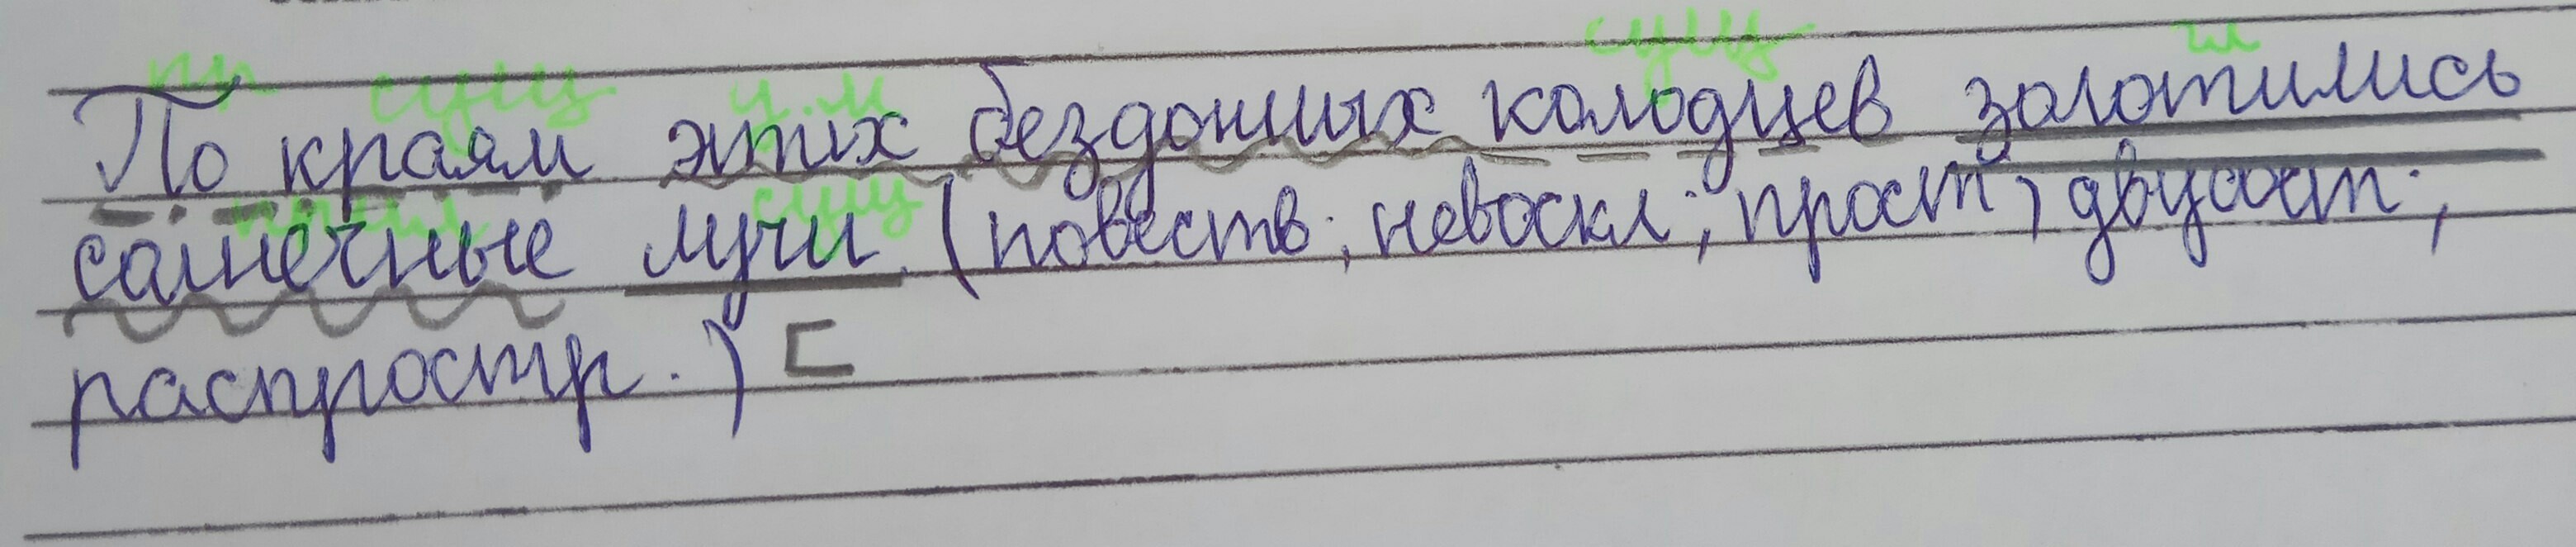 пр сущ ч.м сущ гл
По краям этих бездонных колодцев золотились
прил сущ
солнечные лучи. (повеств; невоскл; прост; двусост.;
распростр.)